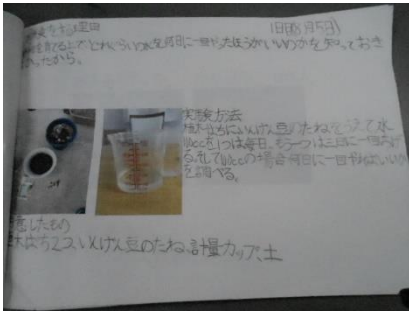 実験をする理由 1日目(8月5日)
を育てる上で、どれぐらいの水を何日に一回やったほうがいいのかを知っておき
たから。
実験方法
植木ばちにいんげん豆のたねをうえて水
ccを一つは毎日、もう一つは三日に一回あげ
る。そして ccの場合何日に一回やればいいか
を調べる。
意したもの
木ばち2つ、いんげん豆のたね、計量カップ、土